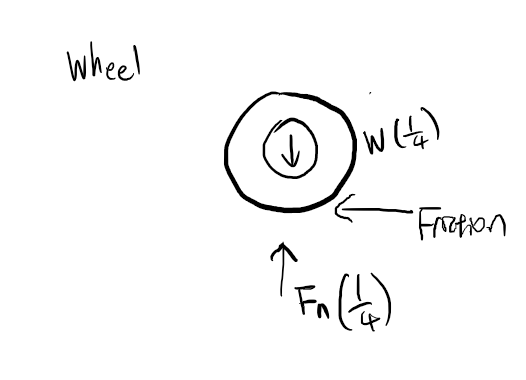 Wheel
W(1/4)
Friction
Fn(1/4)